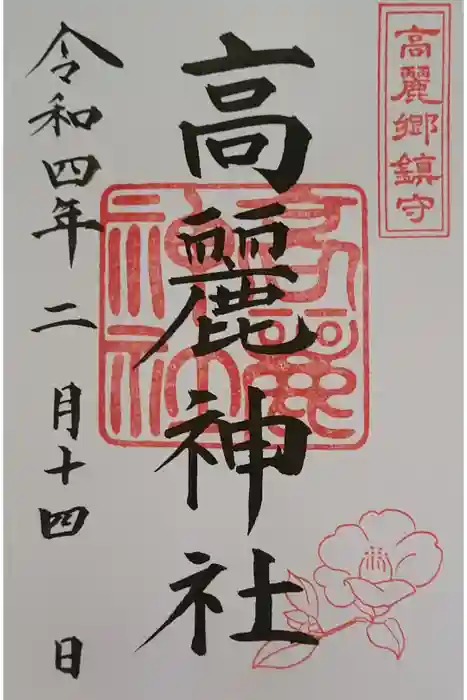 高麗郷鎮守
高麗神社
高麗神社
令和四年 二月十四日